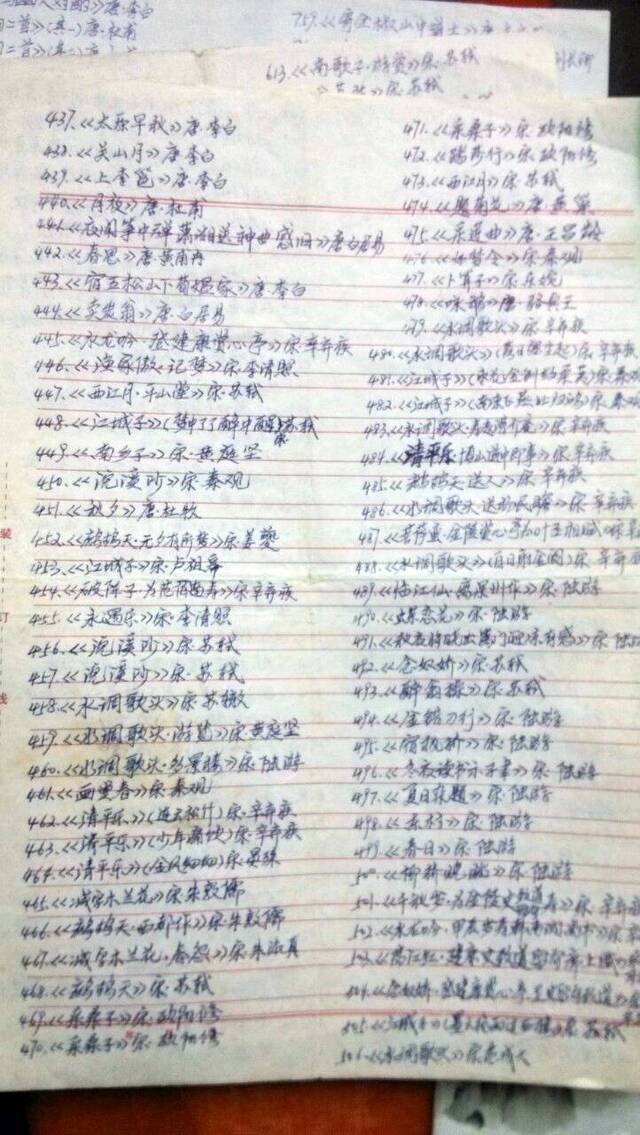 唐·李白
唐·杜甫
613.《南歌子·游赏》宋·苏轼
437.《太原早秋》唐·李白
438.《关山月》唐·李白
439.《上李邕》唐·李白
440.《月夜》唐·杜甫
441.《夜闻筝中弹潇湘送神曲感旧》唐白居易
442.《春思》唐·皇甫冉
443.《宿五松山下荀媪家》唐·李白
444.《卖炭翁》唐·白居易
445.《水龙吟·登建康赏心亭》宋·辛弃疾
446.《渔家傲·记梦》宋·李清照
447.《西江月·平山堂》宋·苏轼
448.《江城子》(梦中了了醉中醒)宋苏轼
449.《南乡子》宋·黄庭坚
450.《浣溪沙》宋·秦观
451.《秋夕》唐·杜牧
452.《鹧鸪天·元夕有所梦》宋·姜夔
453.《江城子》宋·卢祖皋
454.《破阵子·为范南伯寿》宋·辛弃疾
455.《永遇乐》宋·李清照
456.《浣溪沙》宋·苏轼
457.《浣溪沙》宋·苏轼
458.《水调歌头》宋·苏辙
459.《水调歌头·游览》宋·黄庭坚
460.《水调歌头·多景楼》宋·陆游
461.《画堂春》宋·秦观
462.《清平乐》(连云松竹)宋·辛弃疾
463.《清平乐》(少年痛饮)宋·辛弃疾
464.《清平乐》(金风细细)宋·晏殊
465.《减字木兰花》宋·朱敦儒
466.《鹧鸪天·西都作》宋·朱敦儒
467.《减字木兰花·春怨》宋·朱淑真
468.《鹧鸪天》宋·苏轼
469.《采桑子》宋·欧阳修
470.《采桑子》宋·欧阳修
471.《采桑子》宋·欧阳修
472.《踏莎行》宋·欧阳修
473.《西江月》宋·苏轼
474.《题菊花》唐·黄巢
475.《采莲曲》唐·王昌龄
476.《如梦令》宋·秦观
477.《卜算子》宋·乐婉
478.《咏鹅》唐·骆宾王
479.《水调歌头》宋·辛弃疾
480.《水调歌头》宋·辛弃疾
481.《江城子》
482.《江城子》(南来飞燕北归鸿)宋·秦观
483.《水调歌头·寿赵漕介庵》宋·辛弃疾
484.《清平乐·博山道中即事》宋·辛弃疾
485.《鹧鸪天·送人》宋·辛弃疾
486.《水调歌头·送杨民瞻》宋·辛弃疾
487.《菩萨蛮·金陵赏心亭为叶丞相赋》
488.《水调歌头》(白日射金阙)宋·辛弃疾
489.《临江仙·离果州作》宋·陆游
490.《蝶恋花》宋·陆游
491.《秋夜将晓出篱门迎凉有感》宋·陆游
492.《念奴娇》宋·苏轼
493.《醉翁操》宋·苏轼
494.《金错刀行》宋·陆游
495.《宿枫桥》宋·陆游
496.《冬夜读书示子聿》宋·陆游
497.《夏日杂题》宋·陆游
498.《东村》宋·陆游
499.《春日》宋·陆游
500.《柳桥晚眺》宋·陆游
501.《千秋岁·为金陵史致道寿》宋·辛弃疾
502.《水龙吟·甲辰岁寿韩南涧尚书》宋
503.《满江红·建康史致道留守席上赋》
504.《念奴娇·登建康赏心亭呈史留守致道》
505.《江城子》宋·苏轼
506.《水调歌头》宋
装
订
线